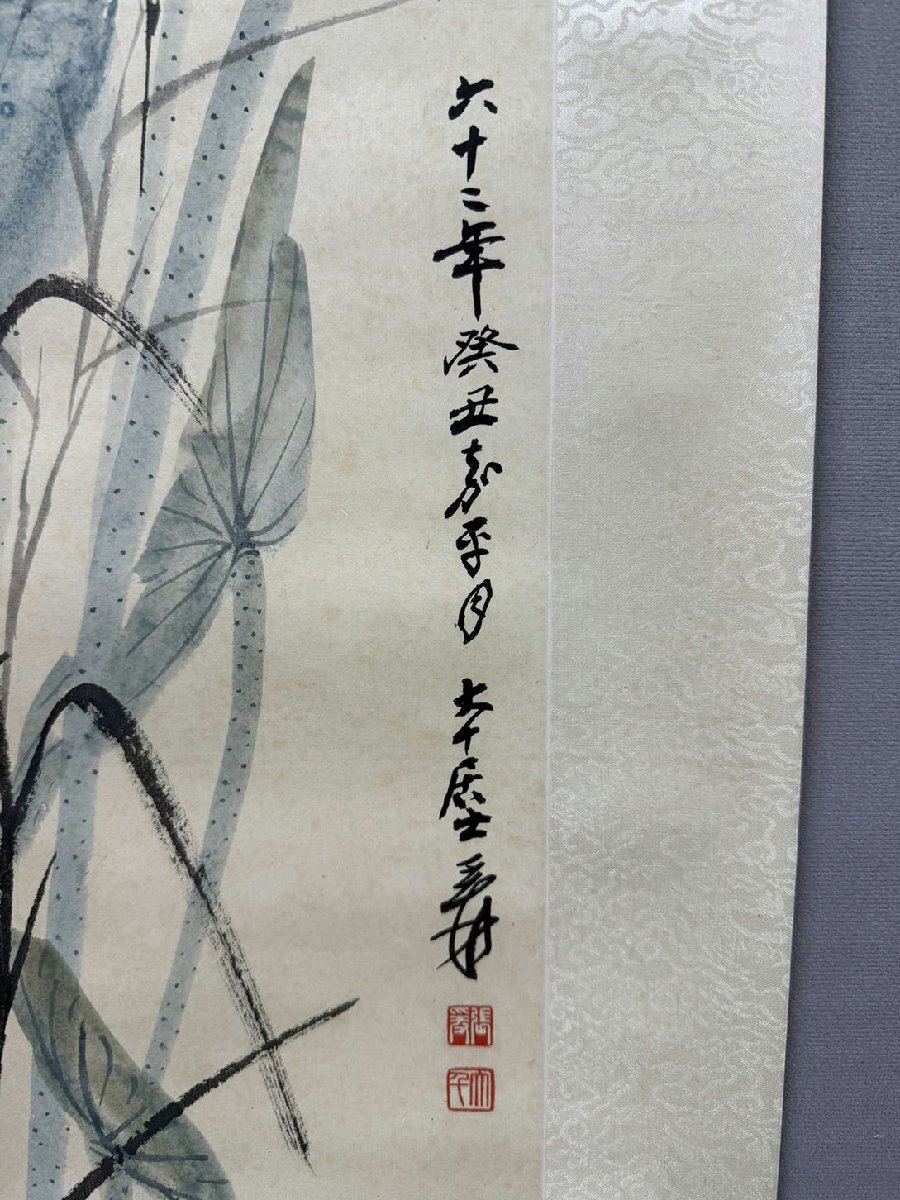 六十二年癸丑嘉平月 大千居士爰
張爰
大千